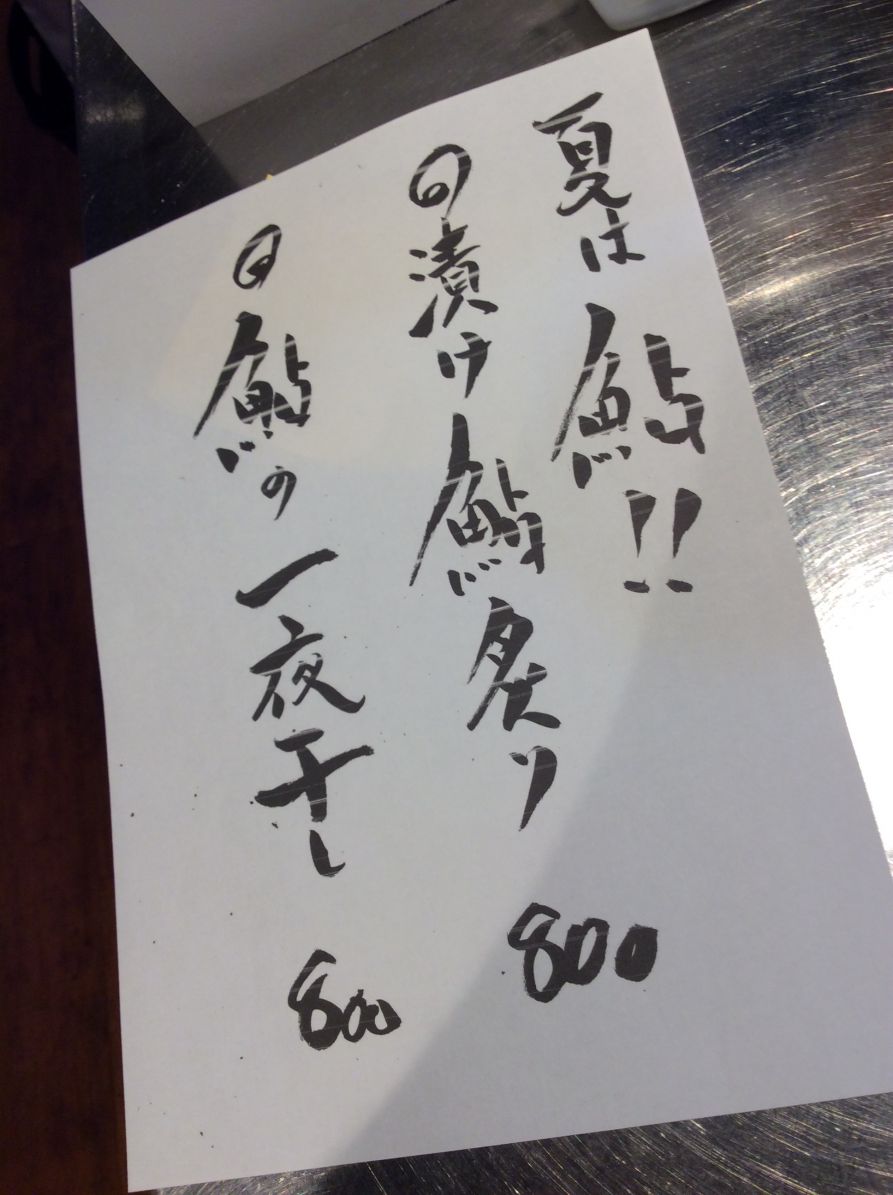 夏は鮎!!
◎漬け鮎炙り 800
◎鮎の一夜干し 800